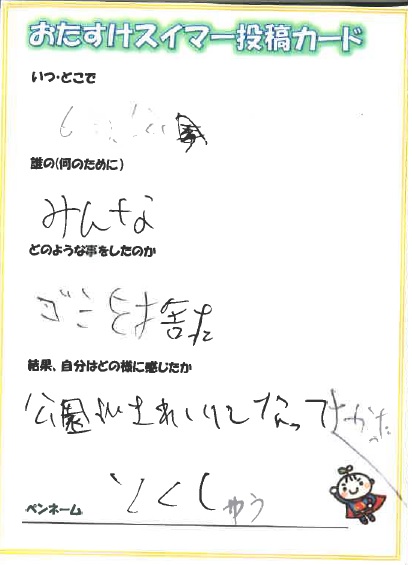 おたすけスイマー投稿カード
いつ・どこで
誰の(何のために)
みんな
どのような事をしたのか
ゴミを捨た
結果、自分はどの様に感じたか
公園がきれいになってよかった
ペンネーム